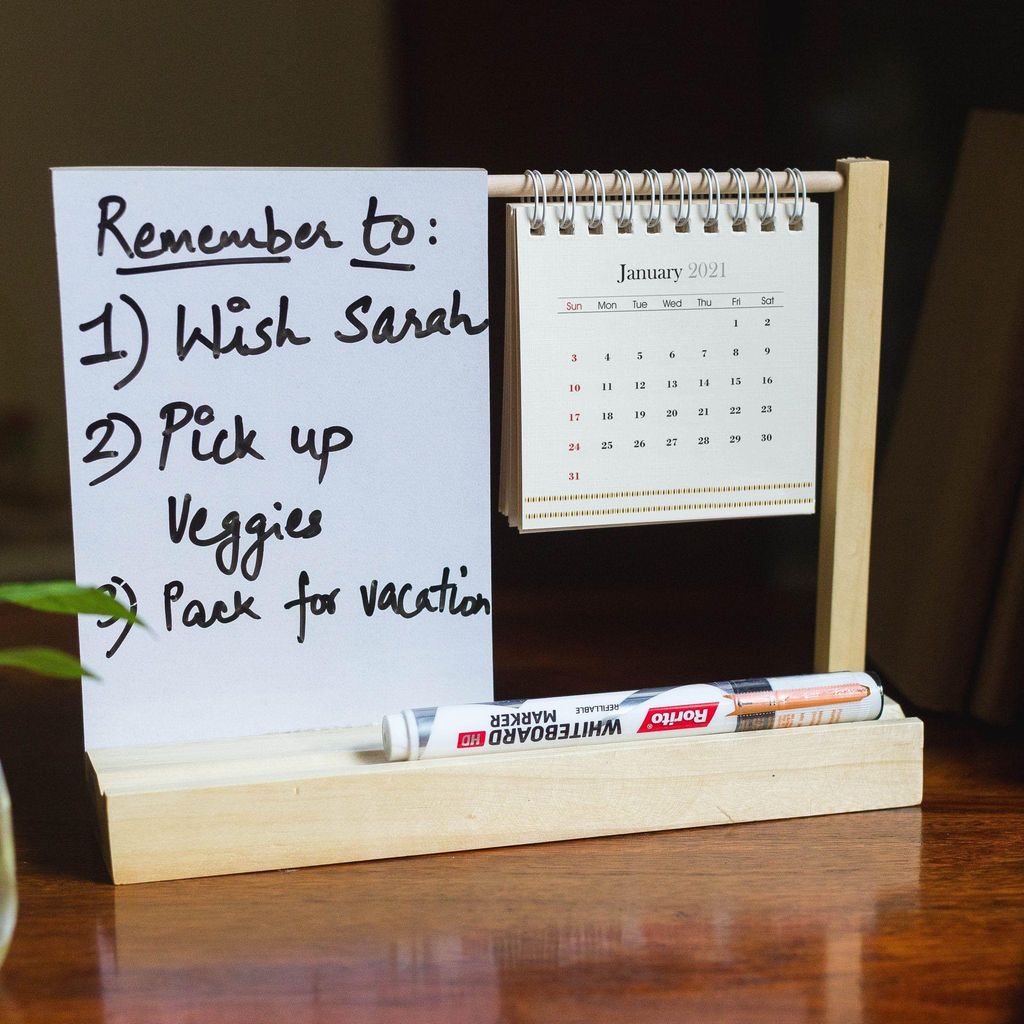 Remember to:
1) Wish Sarah
2) Pick up
Veggies
3) Pack for vacation
January 2021
Sun Mon Tue Wed Thu Fri Sat
1 2
3 4 5 6 7 8 9
10 11 12 13 14 15 16
17 18 19 20 21 22 23
24 25 26 27 28 29 30
31
Rorito®
WHITEBOARD HD
MARKER
REFILLABLE